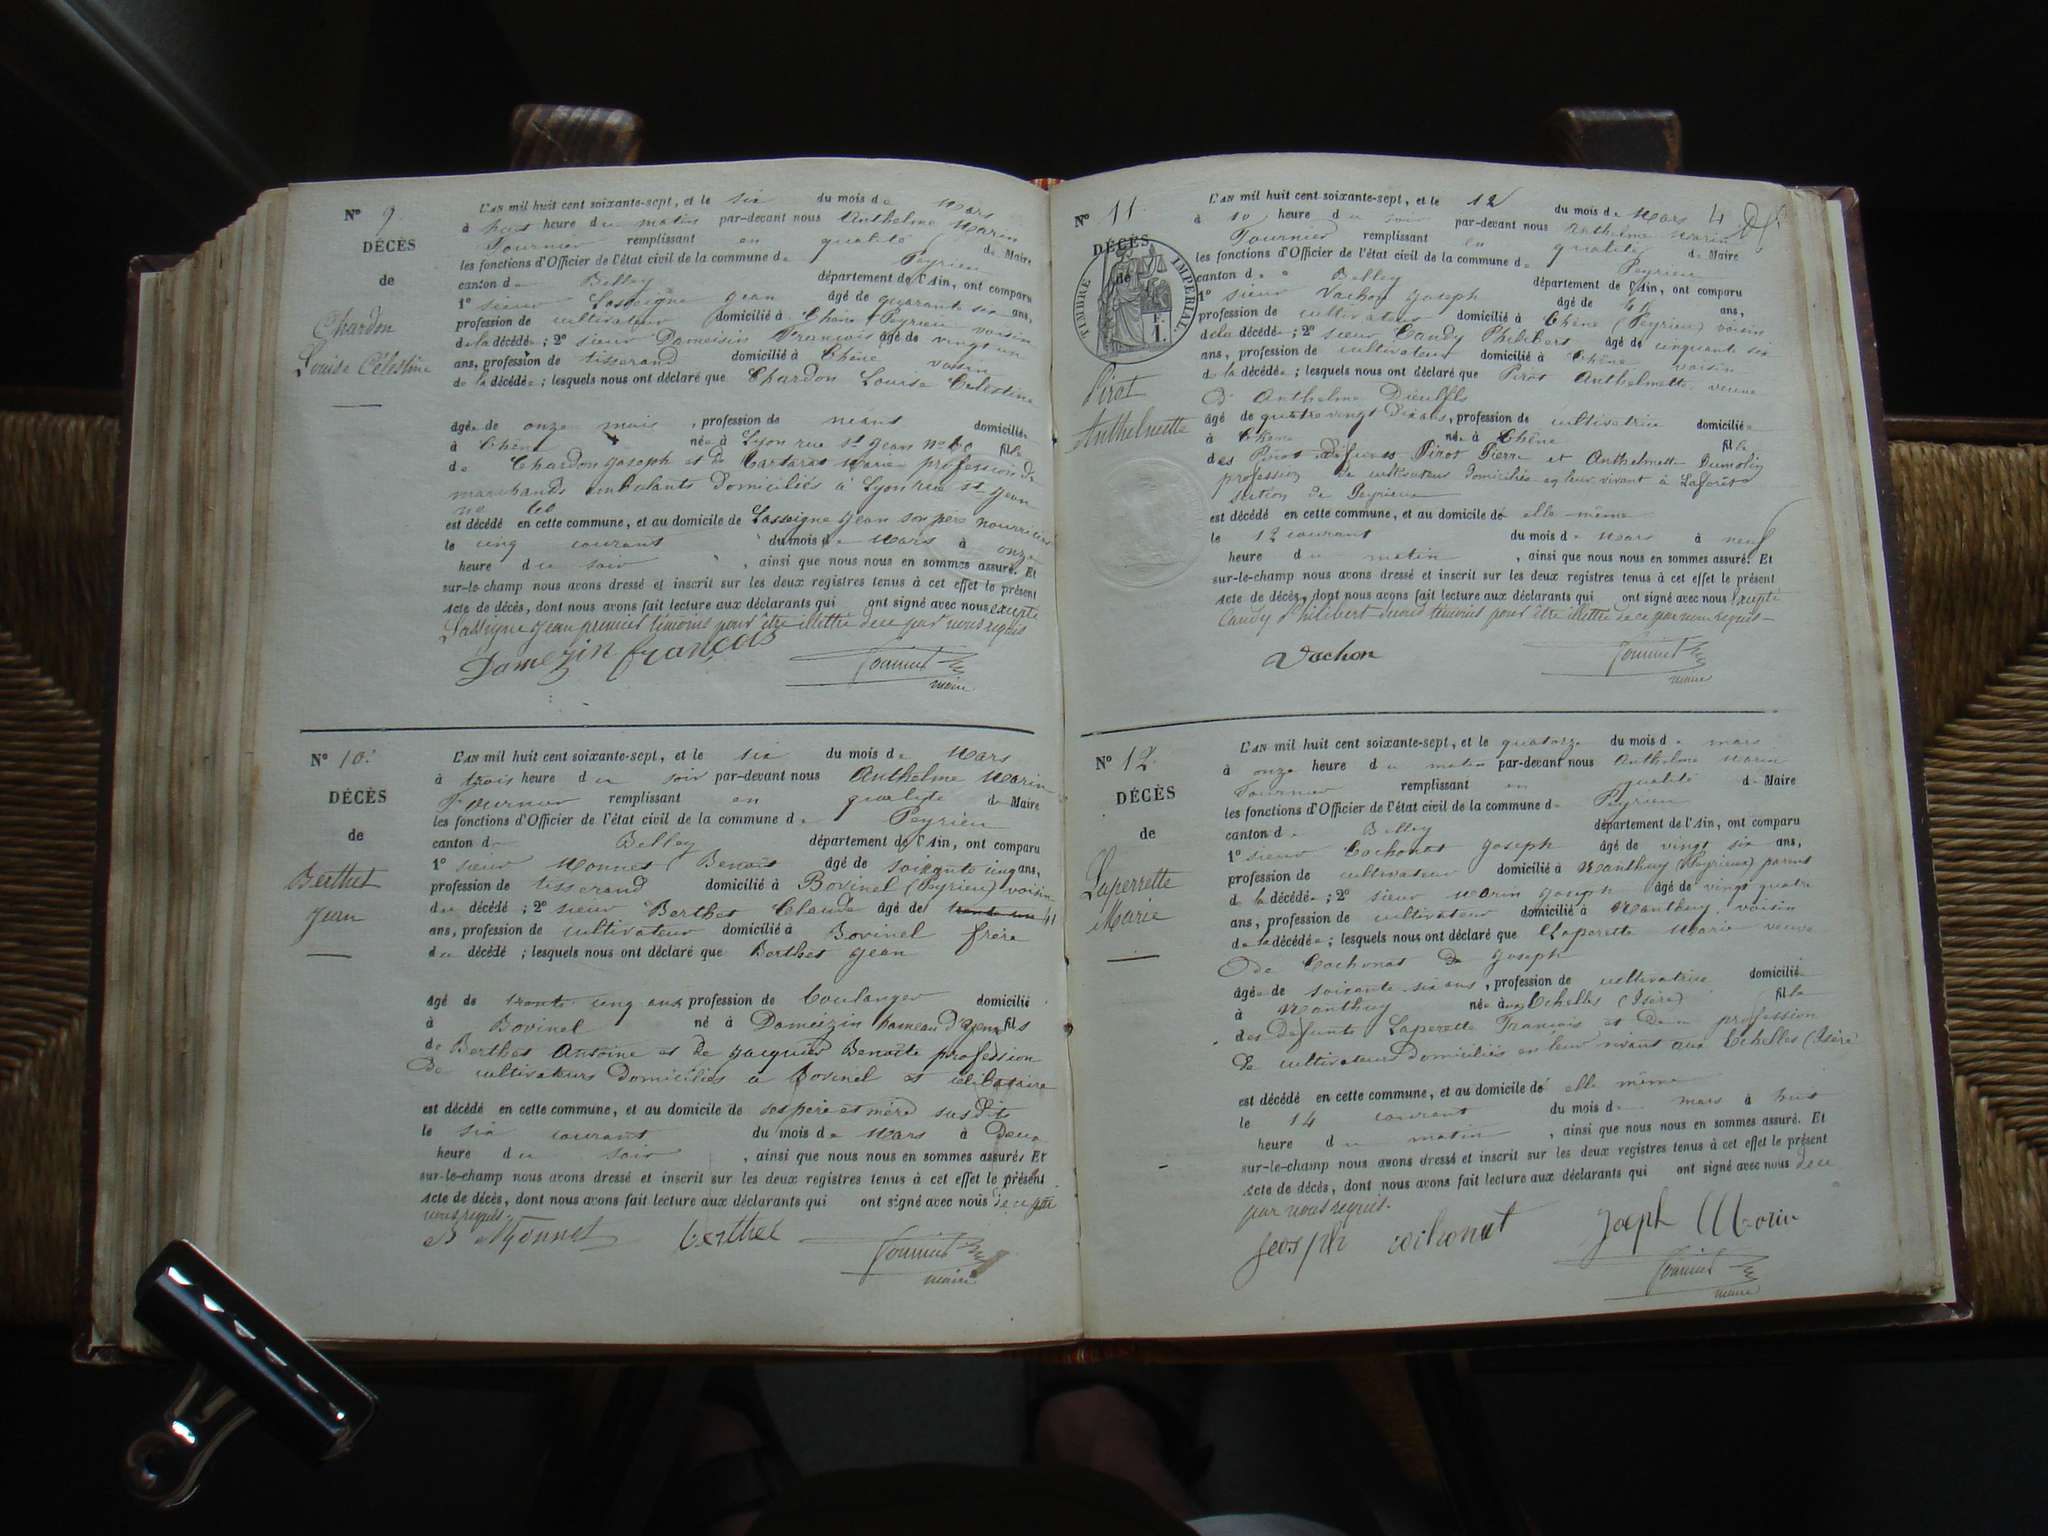 N° 9
DÉCÈS
de
Chardon
Louise Célestine
L'AN mil huit cent soixante-sept, et le six du mois de Mars
à huit heure du matin par-devant nous Anthelme Marin
Fournier remplissant en qualité de Maire
les fonctions d'Officier de l'état civil de la commune de Peyrieu
canton de Belley département de l'Ain, ont comparu
1° sieur Lassaigne Jean âgé de quarante six ans,
profession de cultivateur domicilié à Chêne (Peyrieu) voisin
de la décédée ; 2° sieur Dameisin François âgé de vingt un
ans, profession de tisserand domicilié à Chêne voisin
de la décédée ; lesquels nous ont déclaré que Chardon Louise Celestine
âgée de onze mois , profession de néant domiciliée
à Chêne née à Lyon rue St Jean n° 60 fille
de Chardon Joseph et de Marie profession de
marchands ambulants domiciliés à Lyon rue St Jean
n° 60
est décédé en cette commune, et au domicile de Lassaigne Jean son père nourricier
le cinq courant du mois de Mars à onze
heure du soir , ainsi que nous nous en sommes assuré. Et
sur-le-champ nous avons dressé et inscrit sur les deux registres tenus à cet effet le présent
acte de décès, dont nous avons fait lecture aux déclarants qui ont signé avec nous excepté
Lassaigne Jean premier témoins pour être illettré de ce par nous requis
Damezin françois Fournier
maire
N° 10.
DÉCÈS
de
Berthet
Jean
L'AN mil huit cent soixante-sept, et le six du mois de Mars
à trois heure du soir par-devant nous Anthelme Marin
Fournier remplissant en qualité de Maire
les fonctions d'Officier de l'état civil de la commune de Peyrieu
canton de Belley département de l'Ain, ont comparu
1° sieur Monnet Benoit âgé de soixante cinq ans,
profession de tisserand domicilié à Bovinel (Peyrieu) voisin
du décédé ; 2° sieur Berthet Claude âgé de 41
ans, profession de cultivateur domicilié à Bovinel frère
du décédé ; lesquels nous ont déclaré que Berthet Jean
âgé de trente cinq ans profession de boulanger domicilié
à Bovinel né à Dameizin hameau d'Yenne fils
de Berthet Antoine et de Jacquier Benoîte profession
de cultivateurs domiciliés à Bovinel et célibataire
est décédé en cette commune, et au domicile de ses père et mère susdits
le six courant du mois de Mars à deux
heure du soir , ainsi que nous nous en sommes assuré. Et
sur-le-champ nous avons dressé et inscrit sur les deux registres tenus à cet effet le présent
acte de décès, dont nous avons fait lecture aux déclarants qui ont signé avec nous de ce par
nous requis.
B Monnet Berthet Fournier
maire
N° 11.
DÉCÈS
de
TIMBRE IMPERIAL
F.
1.
Pirot
Anthelmette
L'AN mil huit cent soixante-sept, et le 12 du mois de Mars
à 10 heure du soir par-devant nous Anthelme Marin
Fournier remplissant en qualité de Maire
les fonctions d'Officier de l'état civil de la commune de Peyrieu
canton de Belley département de l'Ain, ont comparu
1° sieur Vachon Joseph âgé de ans,
profession de cultivateur domicilié à Chêne (Peyrieu) voisin
de la décédée ; 2° sieur Caudy Philibert âgé de cinquante six
ans, profession de cultivateur domicilié à Chêne voisin
de la décédée ; lesquels nous ont déclaré que Pirot Anthelmette veuve
d' Anthelme
âgé de quatre vingt dix ans, profession de cultivatrice domiciliée
à Chêne née à Chêne fille
des Pirot défunts Pirot Pierre et Anthelmette Dumolin
profession de cultivateurs domiciliés en leur vivant à Laforêt
section de Peyrieu
est décédé en cette commune, et au domicile de elle-même
le 12 courant du mois de Mars à neuf
heure du matin , ainsi que nous nous en sommes assuré. Et
sur-le-champ nous avons dressé et inscrit sur les deux registres tenus à cet effet le présent
acte de décès, dont nous avons fait lecture aux déclarants qui ont signé avec nous excepté
Caudy Philibert témoins pour être illettré de ce par nous requis
Vachon Fournier
maire
N° 12.
DÉCÈS
de
Laperrette
Marie
L'AN mil huit cent soixante-sept, et le quatorze du mois de mars
à onze heure du matin par-devant nous Anthelme Marin
Fournier remplissant en qualité de Maire
les fonctions d'Officier de l'état civil de la commune de Peyrieu
canton de Belley département de l'Ain, ont comparu
1° sieur Cochonat Joseph âgé de vingt six ans,
profession de cultivateur domicilié à Nanthuy (Peyrieu) parent
de la décédée ; 2° sieur Marin Joseph âgé de vingt quatre
ans, profession de cultivateur domicilié à Nanthuy voisin
de la décédée ; lesquels nous ont déclaré que Laperette Marie veuve
de Cochonat Joseph
âgée de soixante six ans , profession de cultivatrice domiciliée
à Nanthuy née à aux Echelles (Isère) fille
des défunts Laperette François et de profession
de cultivateurs domiciliés en leur vivant aux Echelles (Isère
est décédé en cette commune, et au domicile de elle même
le 14 courant du mois de mars à huit
heure du matin , ainsi que nous nous en sommes assuré. Et
sur-le-champ nous avons dressé et inscrit sur les deux registres tenus à cet effet le présent
acte de décès, dont nous avons fait lecture aux déclarants qui ont signé avec nous de ce
par nous requis.
Jeosph cochonat Joseph Morin
Fournier
maire